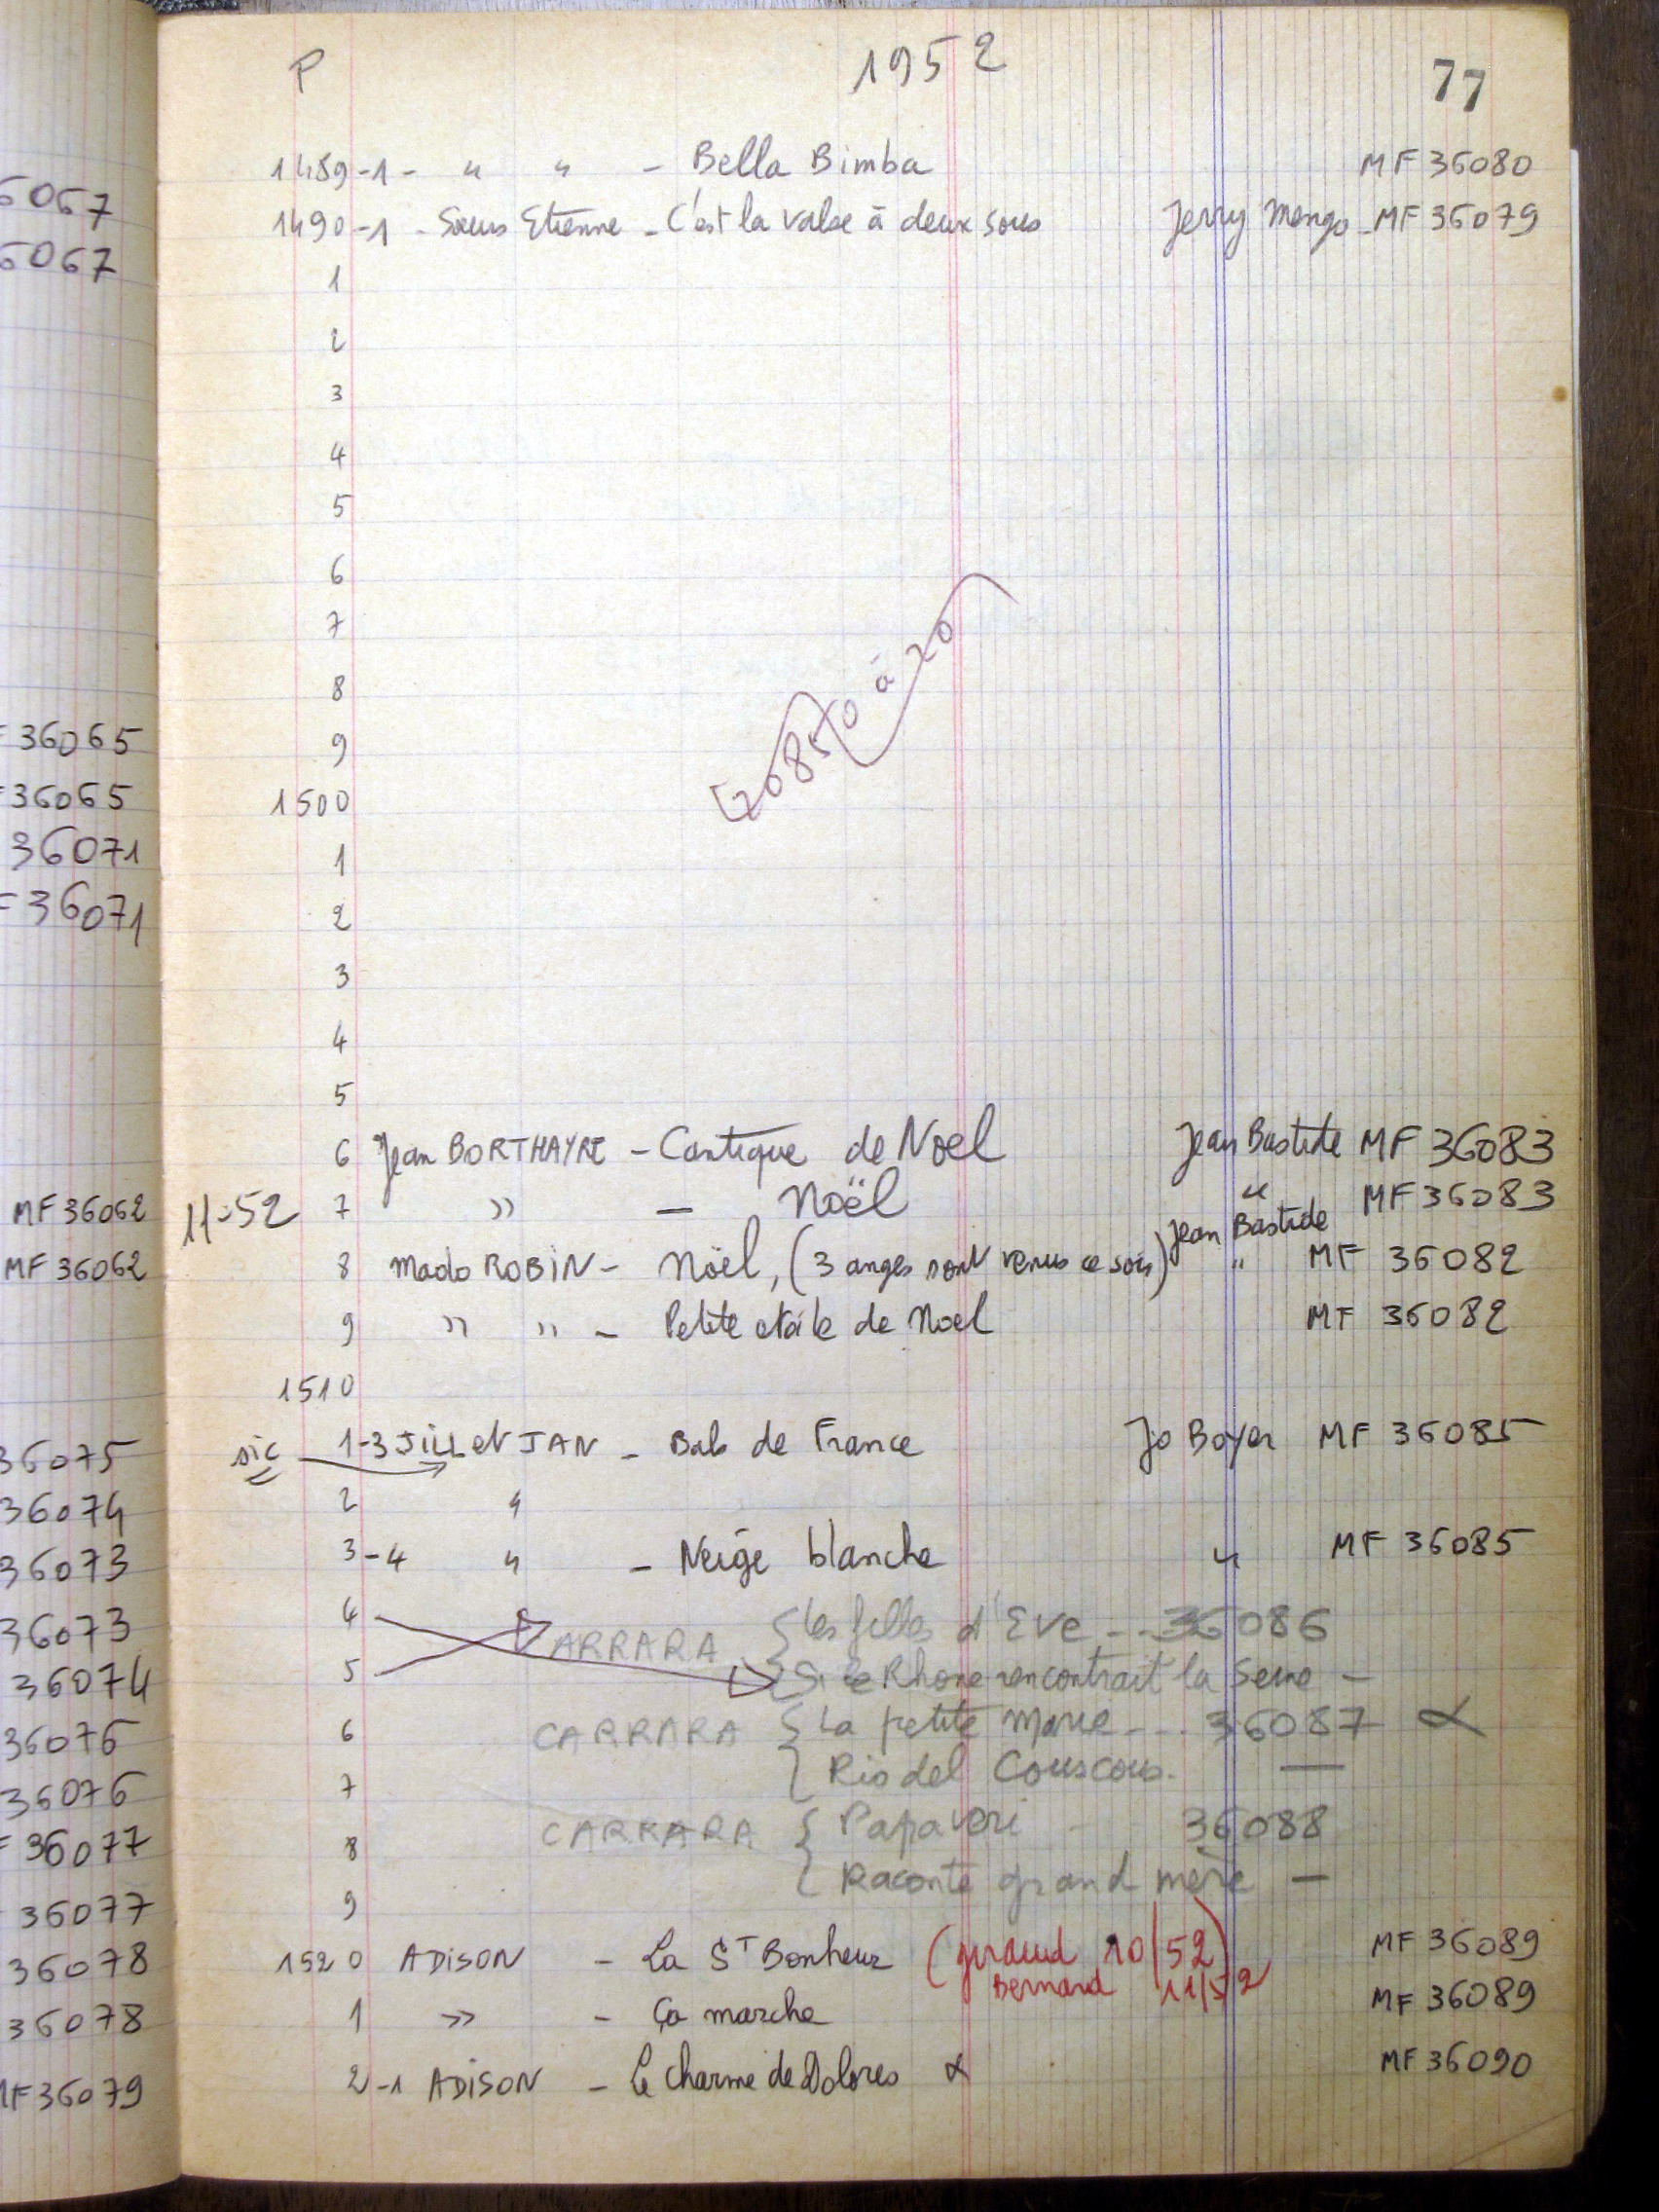 P 1952 77
1489-1- " " - Bella Bimba MF 36080
1490-1 - Sœurs Etienne - C'est la valse à deux sous Jerry Mengo - MF 36079
1
2
3
4
5
6
7
8
9
1500
1
2
3
4
5
6 Jean BORTHAYRE - Cantique de Noel Jean Bastide MF 36083
11-52 7 " - Noël " MF 36083
Jean Bastide
8 Mado ROBIN - Noël, (3 anges sont venus ce soir) " MF 36082
9 " " - Petite etoile de Noel MF 36082
1510
sic 1-3 JILL et JAN - Bals de France Jo Boyer MF 36085
2 "
3-4 " - Neige blanche " MF 36085
4 CARRARA { les filles d'Eve - - 36086
5 { Si le Rhone rencontrait la Seine -
6 CARRARA { La petite Marie - - - 36087 α
7 { Rio del Couscous. —
8 CARRARA { Papaveri - 36088
9 { Raconte grand mère —
1520 ADISON - La St Bonheur (giraud 10/52) MF 36089
Bernard 11/52
1 " - Ça marche MF 36089
2-1 ADISON - Le charme de Dolores α MF 36090
6067
6067
F 36065
F 36065
36071
F 36071
MF 36062
MF 36062
36075
36074
36073
36073
36074
36076
36076
F 36077
36077
36078
36078
MF 36079